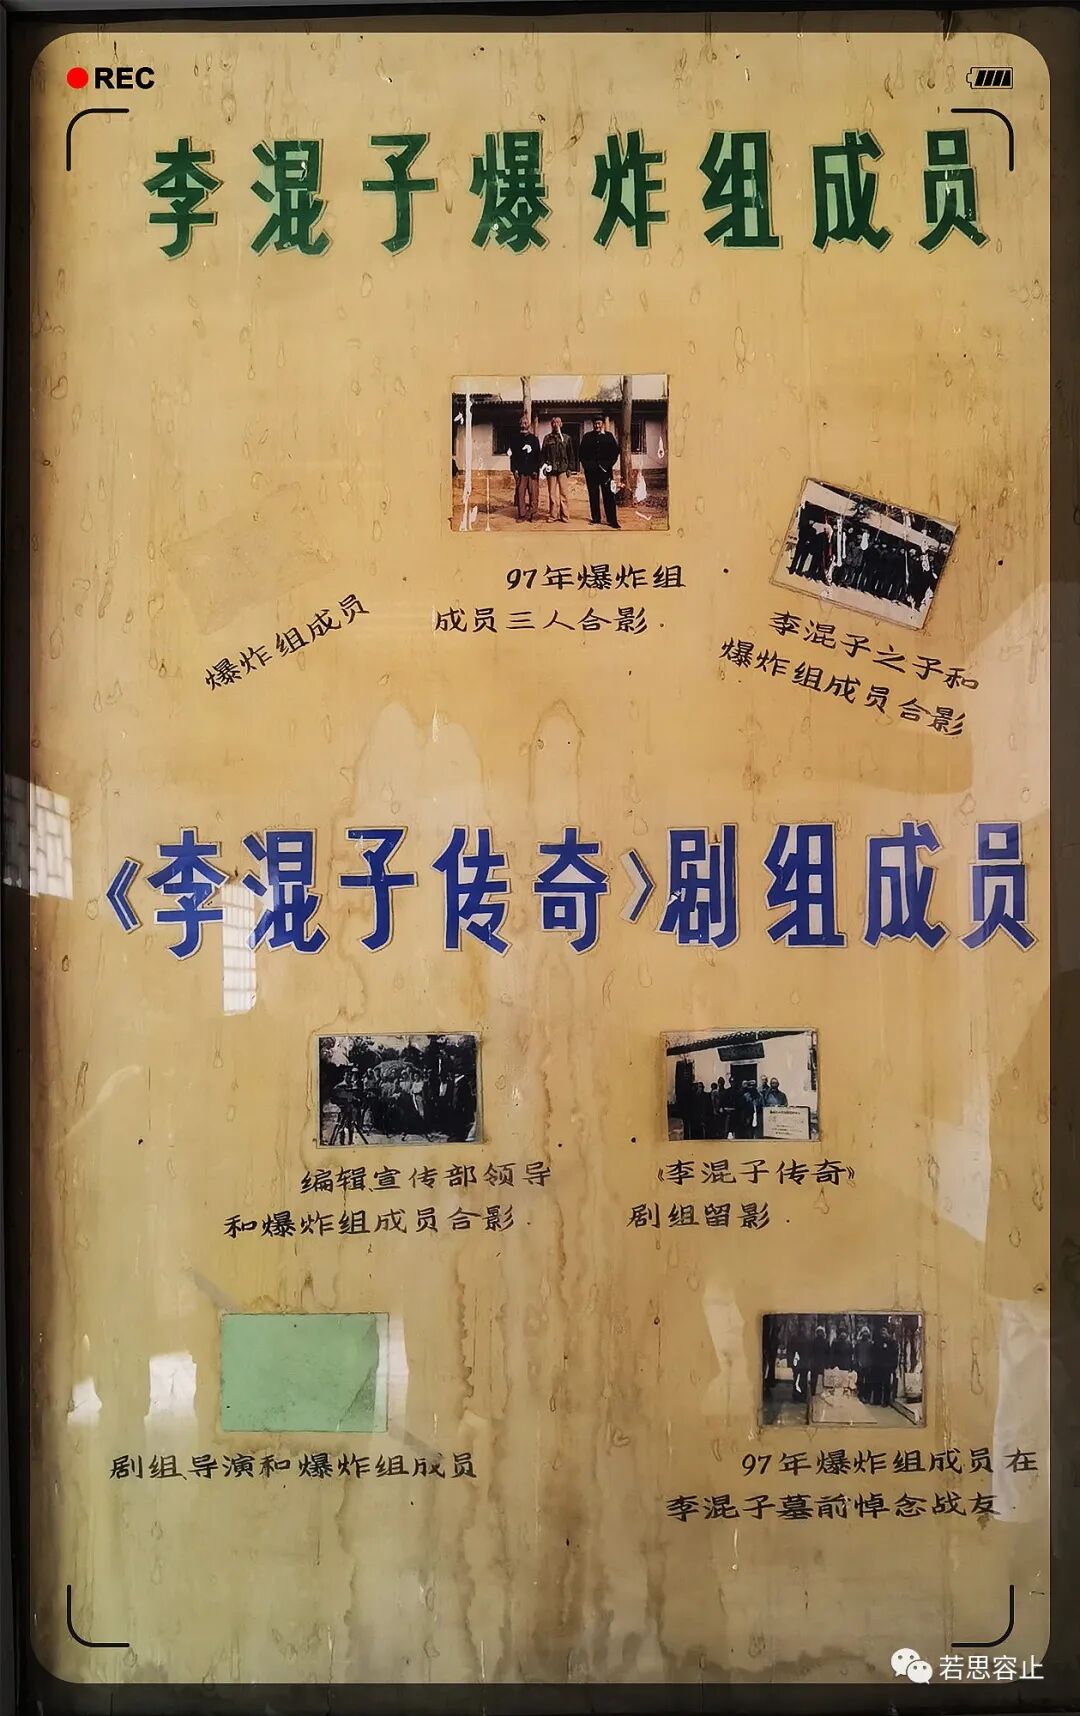 REC
李混子爆炸组成员
97年爆炸组
成员三人合影.
爆炸组成员
李混子之子和
爆炸组成员合影
《李混子传奇》剧组成员
编辑宣传部领导
和爆炸组成员合影.
《李混子传奇》
剧组留影.
剧组导演和爆炸组成员
97年爆炸组成员在
李混子墓前悼念战友.
若思容止